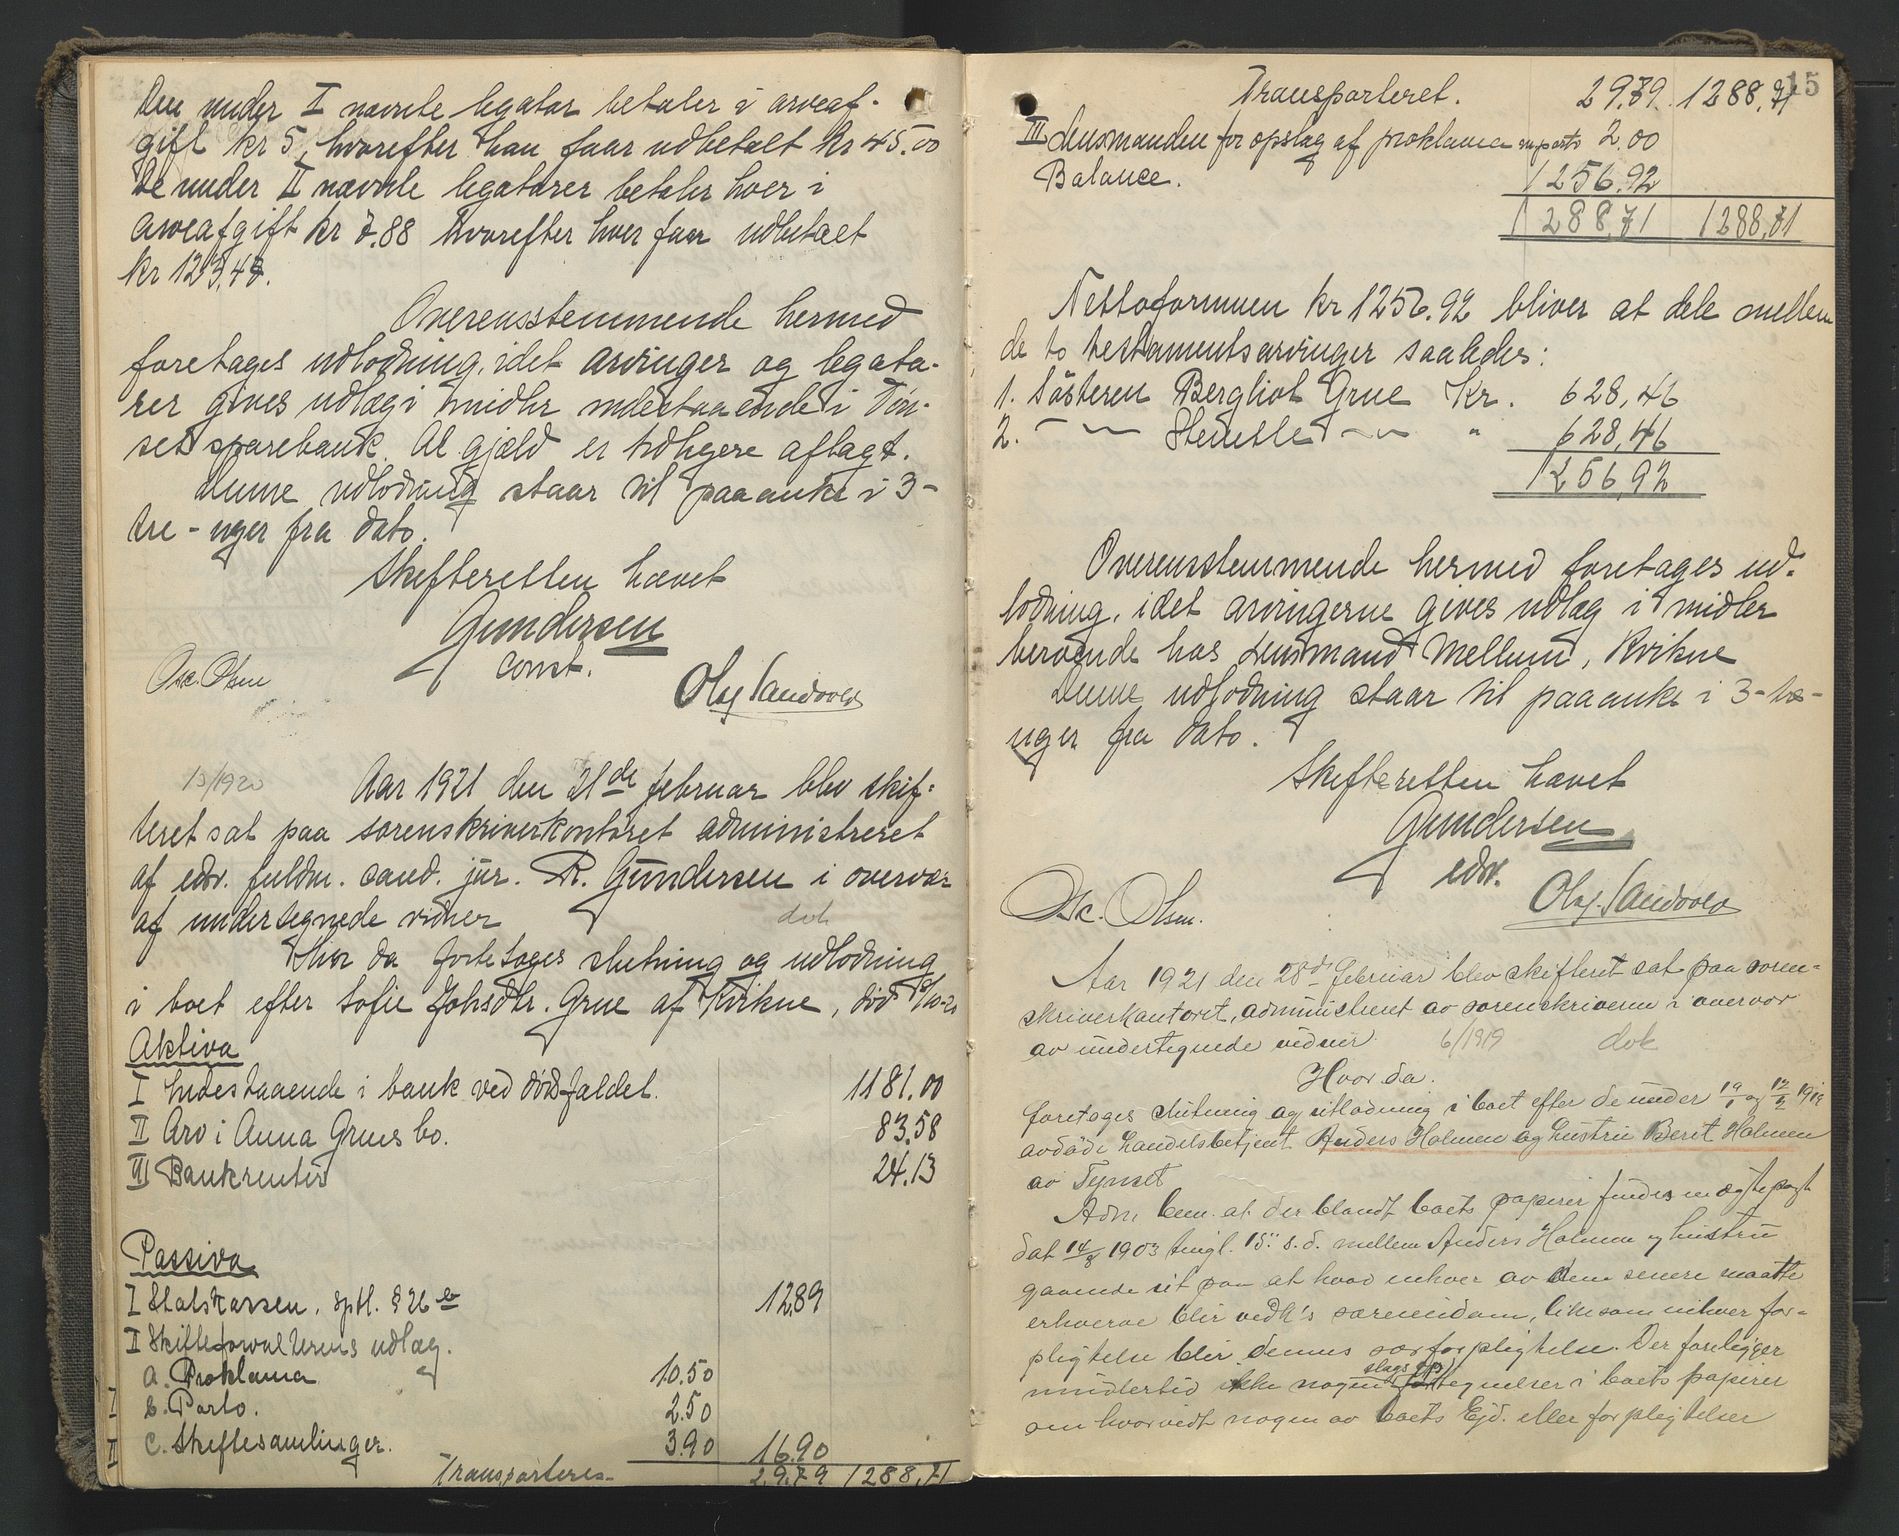 Den under I nævnte legatar betaler i arveaf-
gift kr 5, hvorefter han faar udbetalt kr 45.00
De under II nævnte legatarer betaler hver i
arveafgift kr 7.88 hvorefter hver faar udbetalt
kr 123,43.
Overensstemmende hermed
foretages udlodning, idet arvinger og legata-
rer gives udlæg i midler indestaaende i Tøn-
set sparebank. Al gjæld er tidligere aflagt.
Denne udlodning staar til paaanke i 3-
tre - uger fra dato.
Skifteretten hævet
Gundersen
const.
Osc. Olsen
Olaf Sandvold
13/1920
Aar 1921 den 21de februar blev skif-
teret sat paa sorenskriverkontoret administreret
af edsv. fuldm. cand. jur. R. Gundersen i overvær
af undertegnede vidner
dok
Hvor da foretoges slutning og udlodning
i boet efter Sofie Johsdtr. Grue af Kvikne, død
Aktiva
I Indestaaende i bank ved dødsfaldet. 1181.00
II Arv i Anna Grues bo. 83.58
III Bankrenter 24.13
Passiva
I Statskassen. sptl. § 26 b 12,89
II Skifteforvalterens udlæg.
a. Proklama 10.50
I b. Porto. 2.50
II c. Skiftesamlinger. 3.90 16.90
Transporteres 29.79 1288,71
15
Transporteret. 29.79. 1288,71
III Lensmanden for opslag af proklama m porto 2.00
Balance. 1256.92
1288,71 1288,71
Nettoformuen kr 1256.92 bliver at dele mellem
de to testamentsarvinger saaledes:
1. Søsteren Bergliot Grue Kr. 628,46
2. - " - Stenille - " - " 628,46
1256,92
Overensstemmende hermed foretages ud-
lodning, idet arvingerne gives udlæg i midler
beroende hos lensmand Mellum, Kvikne
Denne udlodning staar til paaanke i 3-tre-
uger fra dato.
Skifteretten hævet
Gundersen
edsv.
Osc. Olsen.
Olaf Sandvold
Aar 1921 den 28de februar blev skifteret sat paa soren-
skriverkontoret, administreret av sorenskriveren i overvær
av undertegnede vidner. 6/1919 dok
Hvor da.
foretages slutning og utlodning i boet efter de under 19/1 og 12/2 1919
avdøde handelsbetjent Anders Holmen og hustru Beret Holmen
av Tynset
Adm. bem. at der blandt boets papirer findes mægtepagt
dat 14/8 1903 tingl. 15. s.d. mellem Anders Holmen og hustru
gaaende ut paa at hvad enhver av dem senere maatte
erhverve blir vedk's særeiendom, likesom enhver for-
pligtelse blir dennes særforpligtelse. Der foreligger
imidlertid ikke nogen slags optegnelser i boets papirer
om hvorvidt nogen av boets Ejd. eller forpligtelser